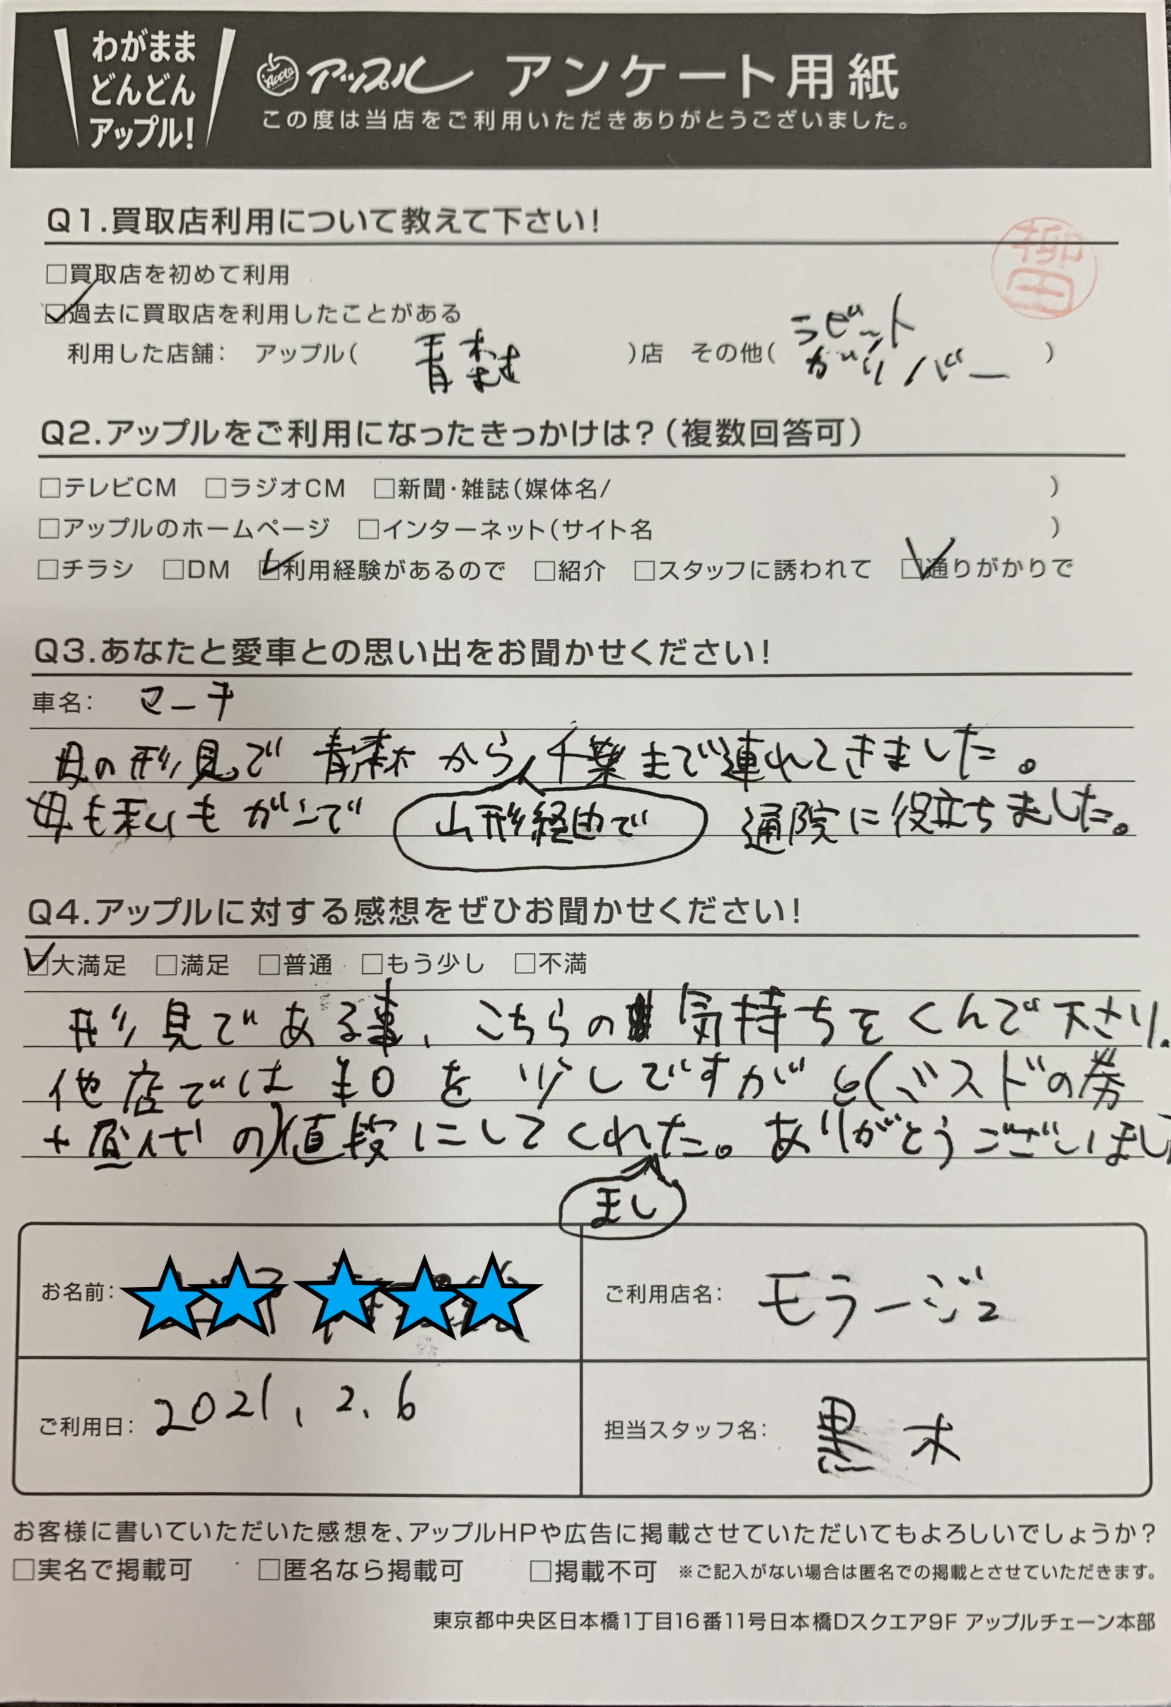 わがまま
どんどん
アップル!
Apple アップル アンケート用紙
この度は当店をご利用いただきありがとうございました。
Q1.買取店利用について教えて下さい!
柳田
□買取店を初めて利用
☑過去に買取店を利用したことがある
利用した店舗: アップル( 青森 )店 その他( ラビット ガリバー )
Q2.アップルをご利用になったきっかけは?(複数回答可)
□テレビCM □ラジオCM □新聞・雑誌(媒体名/ )
□アップルのホームページ □インターネット(サイト名 )
□チラシ □DM ☑利用経験があるので □紹介 □スタッフに誘われて ☑通りがかりで
Q3.あなたと愛車との思い出をお聞かせください!
車名: マーチ
母の形見で 青森から 千葉まで連れてきました。
母も私もガンで 山形経由で 通院に役立ちました。
Q4.アップルに対する感想をぜひお聞かせください!
☑大満足 □満足 □普通 □もう少し □不満
形見である事、こちらの 気持ちをくんで下さり、
他店では¥0を少しですがと(ミスドの券
+昼代の)値段にしてくれた。ありがとうございました
まし
お名前:
ご利用店名: モラージュ
ご利用日: 2021.2.6
担当スタッフ名: 黒木
お客様に書いていただいた感想を、アップルHPや広告に掲載させていただいてもよろしいでしょうか?
□実名で掲載可 □匿名なら掲載可 □掲載不可 ※ご記入がない場合は匿名での掲載とさせていただきます。
東京都中央区日本橋1丁目16番11号日本橋Dスクエア9F アップルチェーン本部